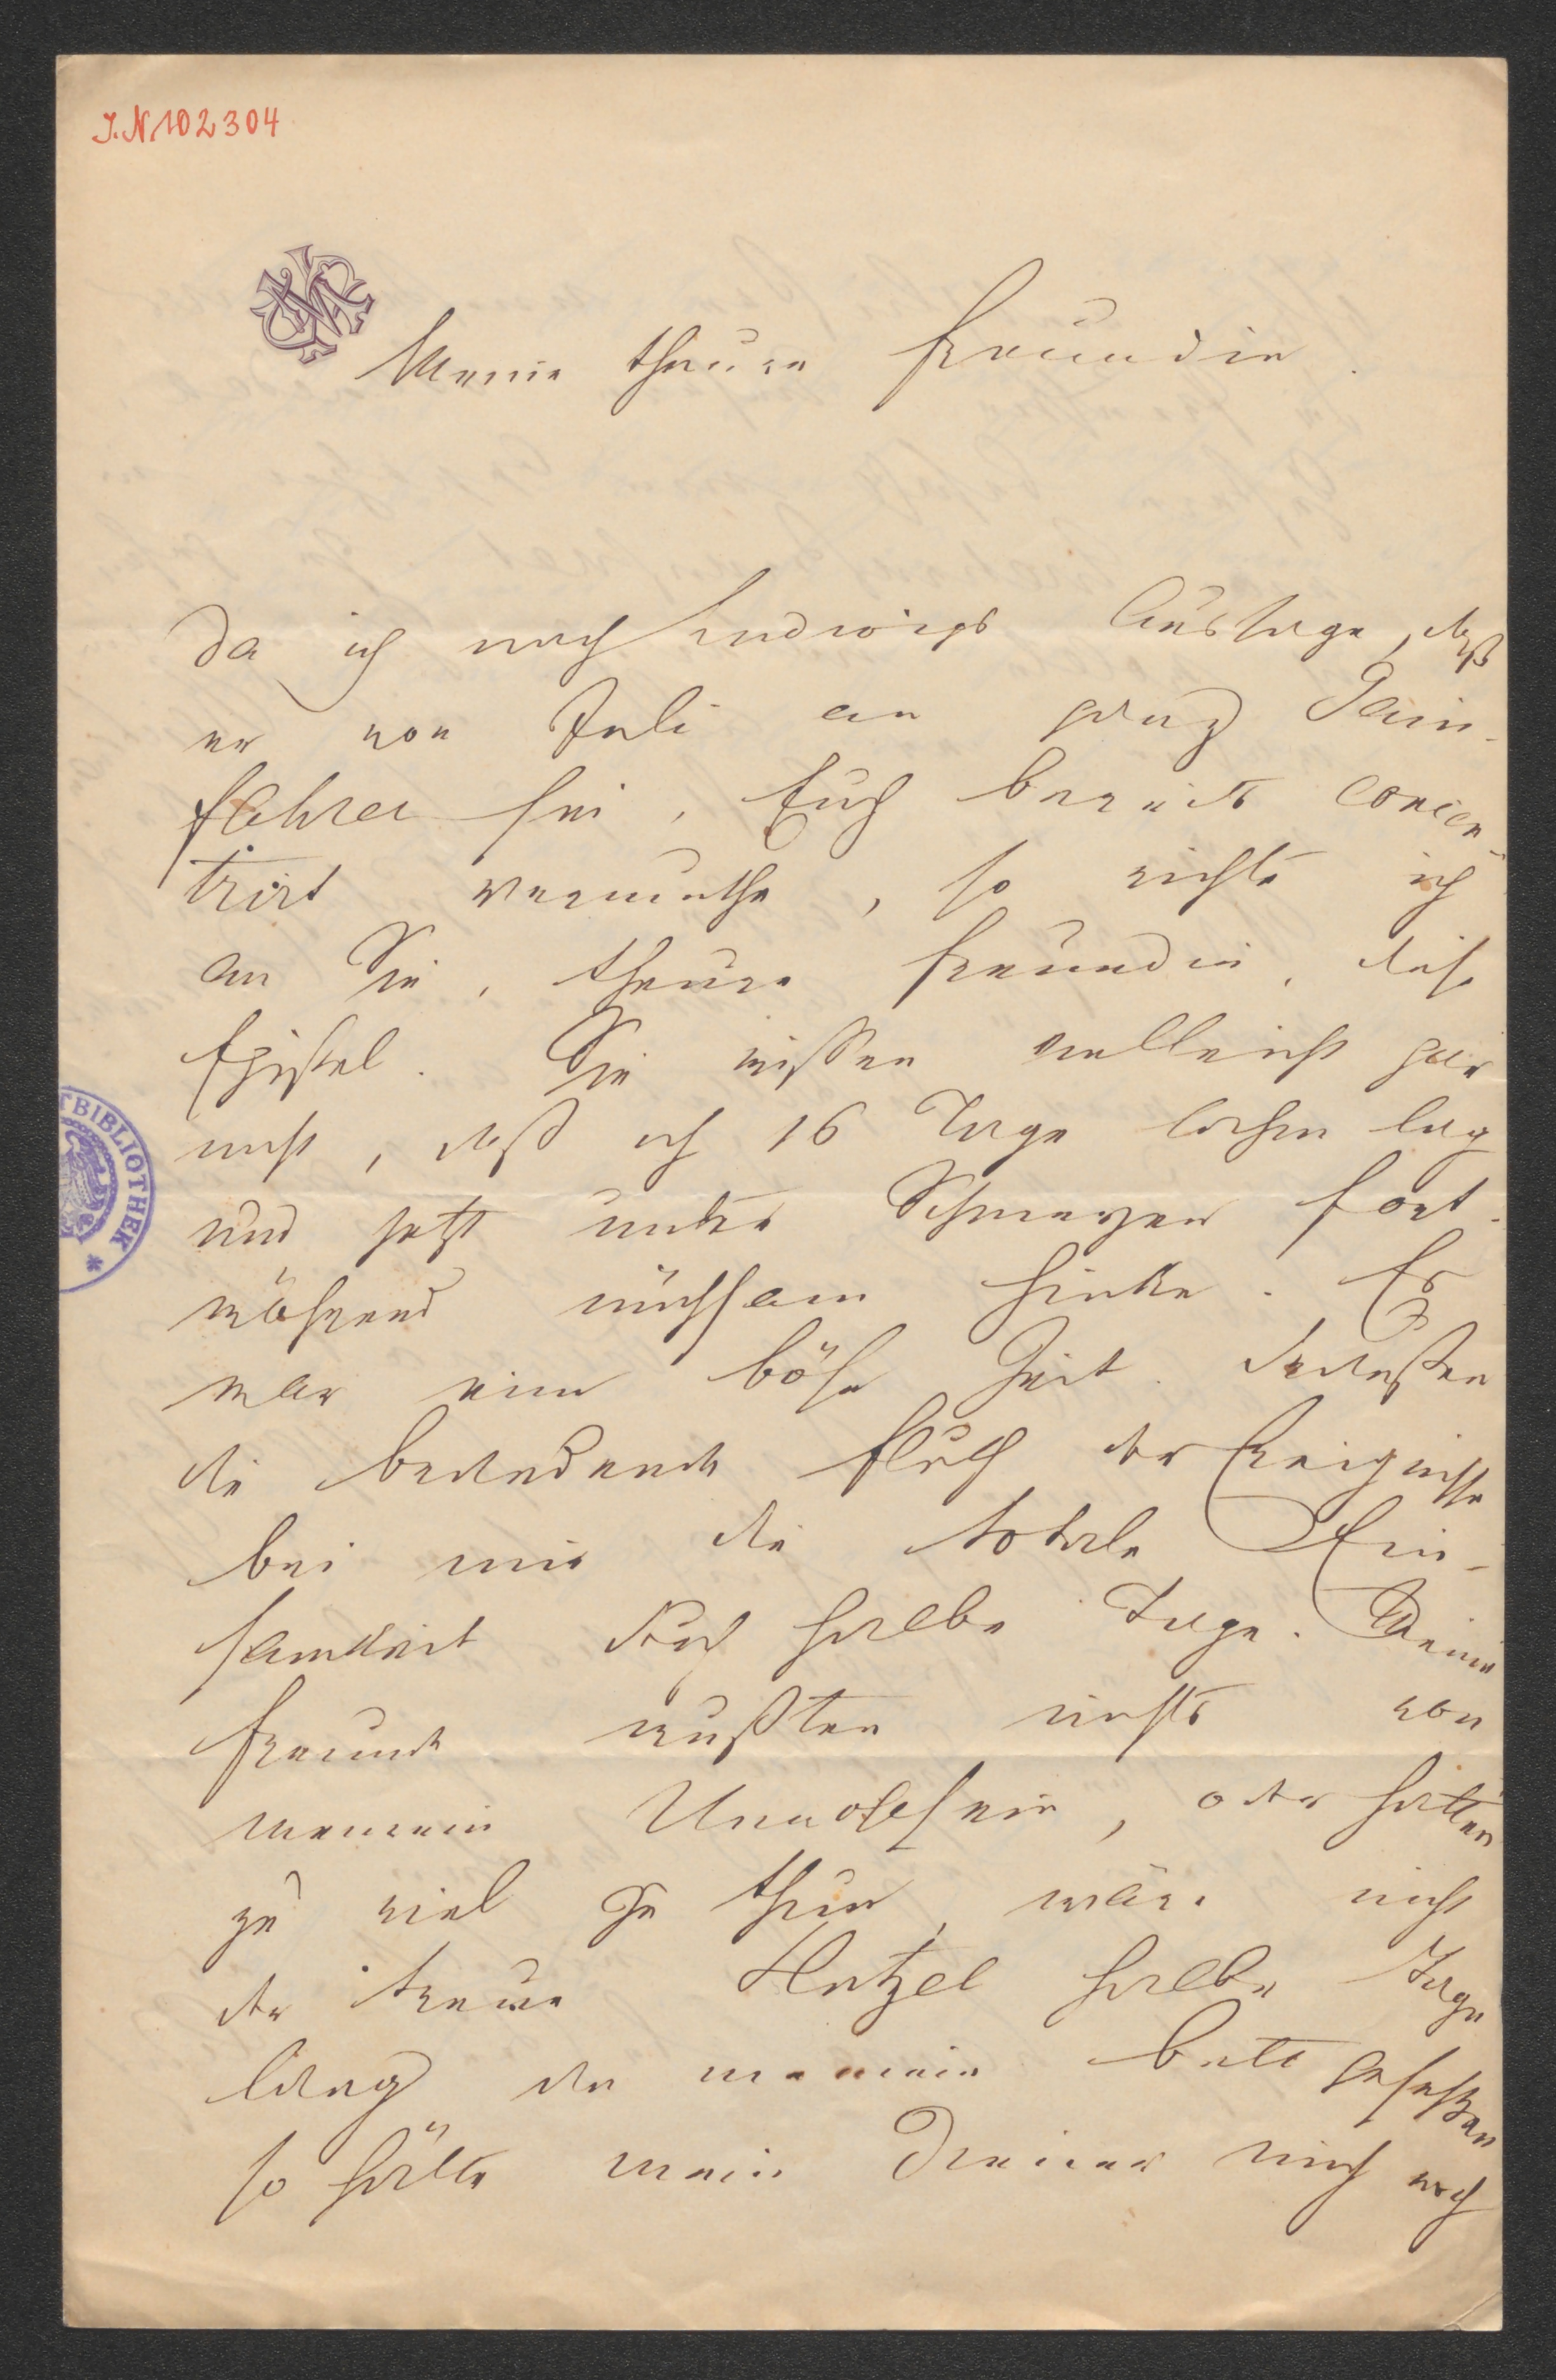 J.N. 102304
Meine theure Freundin
Da ich nach Ludwigs Aussage, daß
er von Juli an ganz Pain-
fahrer sei, Euch bereits concen-
trirt vermuthe, so richte ich
an Sie, theure Freundin, diese
Epistel. Sie wissen vielleicht gar
nicht, daß ich 16 Tage lag
und jetzt unter Schmerzen fort-
während mühsam hinke. Es
war eine böse Zeit.
die bedeutende Fluth der Ereignisse
bei mir die totale Ein-
samkeit durch halbe Tage. Meine
Freunde wußten nichts von
meinem Unwohlsein, oder hatten
zu viel zu thun, wäre nicht
der treue Hetzel halbe Tage
lang an meinem Bett gesessen
so hätte mein Diener mich noch
TBIBLIOTHEK *